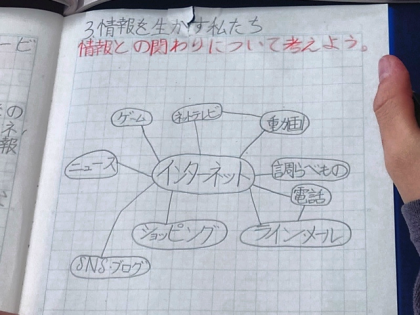 3情報を生かす私たち
情報との関わりについて考えよう。
ゲーム
ネットテレビ
動画
ニュース
インターネット
調らべもの
電話
ショッピング
ライン・メール
SNS・ブログ
ービ
の
ネ
報